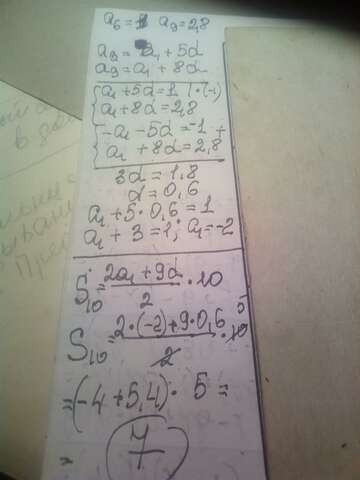 a₆ = 1 a₉ = 2,8
a₉ = a₁ + 5d
a₉ = a₁ + 8d
{ a₁ + 5d = 1 | · (-1)
a₁ + 8d = 2,8
{ -a₁ - 5d = -1 +
a₁ + 8d = 2,8
3d = 1,8
d = 0,6
a₁ + 5 · 0,6 = 1
a₁ + 3 = 1; a₁ = -2
S₁₀ = (2a₁ + 9d)/2 · 10
S₁₀ = (2 · (-2) + 9 · 0,6)/2 · 10 5
= (-4 + 5,4) · 5 =
= 7